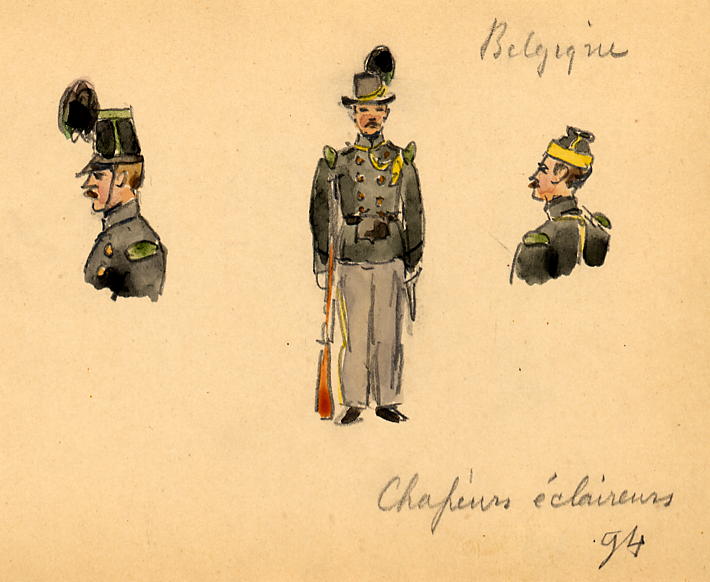 Belgique
Chasseurs éclaireurs
94